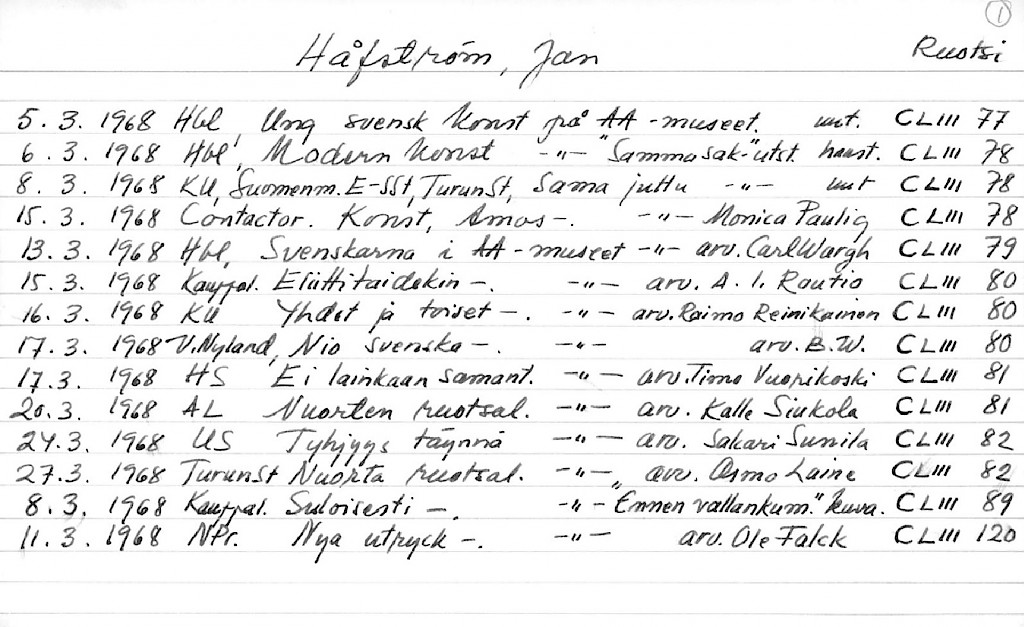 1
Håfström, Jan Ruotsi
5. 3. 1968 Hbl, Ung svensk konst på AA-museet. uut. CLIII 77
6. 3. 1968 Hbl, Modern konst -"- "Samma sak-"utst. haast. CLIII 78
8. 3. 1968 KU, Suomenm. E-SSt, TurunSt, Sama juttu -"- uut CLIII 78
15. 3. 1968 Contactor. Konst, Amos -. -"- Monica Paulig CLIII 78
13. 3. 1968 Hbl, Svenskarna i AA-museet -"- arv. Carl Wargh CLIII 79
15. 3. 1968 Kauppal. Eliittitaidekin -. -"- arv. A. I. Routio CLIII 80
16. 3. 1968 KU Yhdet ja toiset -. -"- arv. Raimo Reinikainen CLIII 80
17. 3. 1968 V.Nyland, Nio svenska -. -"- arv. B.W. CLIII 80
17. 3. 1968 HS Ei lainkaan samant. -"- arv. Timo Vuorikoski CLIII 81
20. 3. 1968 AL Nuorten ruotsal. -"- arv. Kalle Siukola CLIII 81
24. 3. 1968 US Tyhjyys täynnä -"- arv. Sakari Sunila CLIII 82
27. 3. 1968 TurunSt Nuorta ruotsal. -"- arv. Osmo Laine CLIII 82
8. 3. 1968 Kauppal. Suloisesti -. -"- "Ennen vallankum." kuva. CLIII 89
11. 3. 1968 NPr. Nya utryck -. -"- arv. Ole Falck CLIII 120